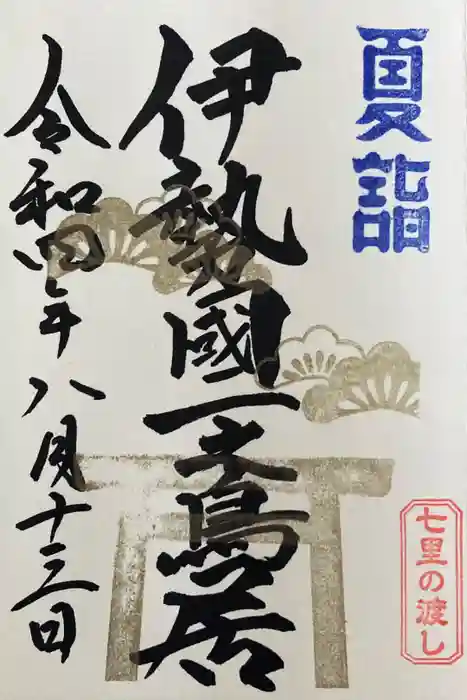 夏詣
七里の渡し
伊勢國一之鳥居
令和四年八月十三日